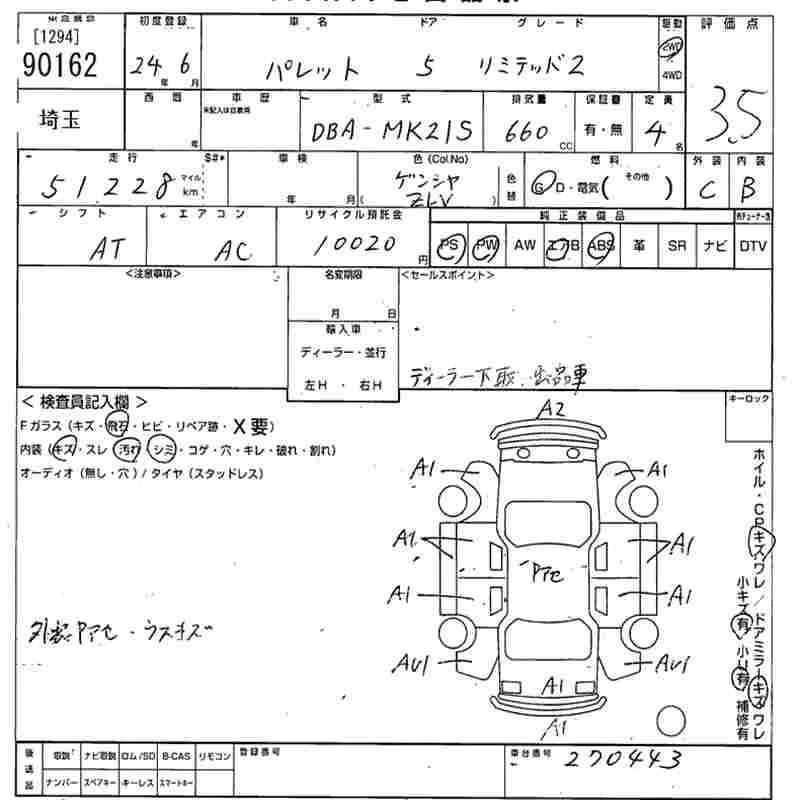 [1294]
90162
初度登録
24年 6月
車名
パレット
ドア
5
グレード
リミテッド2
駆動
2WD
4WD
評価点
3.5
埼玉
西暦
年
車歴
未記入は自家用
型式
DBA-MK21S
排気量
660 CC
保証書
有・無
定員
4名
走行
51228
マイル
km
S#*
車検
年 月
色 (Col.No)
ゲンシヤ
( ZLV )
色替
燃料
G・D・電気( その他 )
外装
C
内装
B
シフト
AT
エアコン
AC
リサイクル預託金
10020円
純正装備品
PS PW AW エアB ABS 革 SR ナビ DTV
<注意事項>
名変期限
月 日
輸入車
ディーラー・並行
左H ・ 右H
<セールスポイント>
ディーラー下取 出品車
<検査員記入欄>
Fガラス(キズ・飛石・ヒビ・リペア跡・X要)
内装(キズ・スレ・汚れ・シミ・コゲ・穴・キレ・破れ・割れ)
オーディオ(無し・穴)/タイヤ(スタッドレス)
キーロック
A2
A1 A1
A1 A1
Pアセ
A1 A1
AU1 AU1
A1
A1
外装Pアセ・ウスキズ
ホイル・CPキズワレ/ドアミラーキズワレ
小キズ有 小U有 補修有
後送品
取説 ナビ取説 ロム/SD B-CAS リモコン
ナンバー スペアキー キーレス スマートキー
登録番号
車台番号
270443